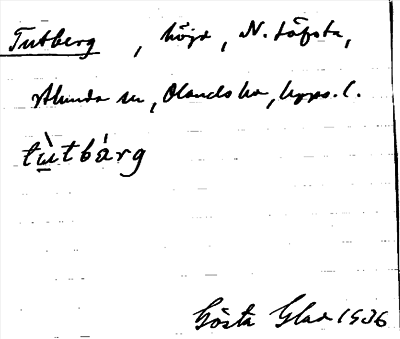 Tutberg, höjd, N. Löfsta,
Alunda sn, Olands hd, Upps. l.
tùtbárg
Gösta Glad 1936